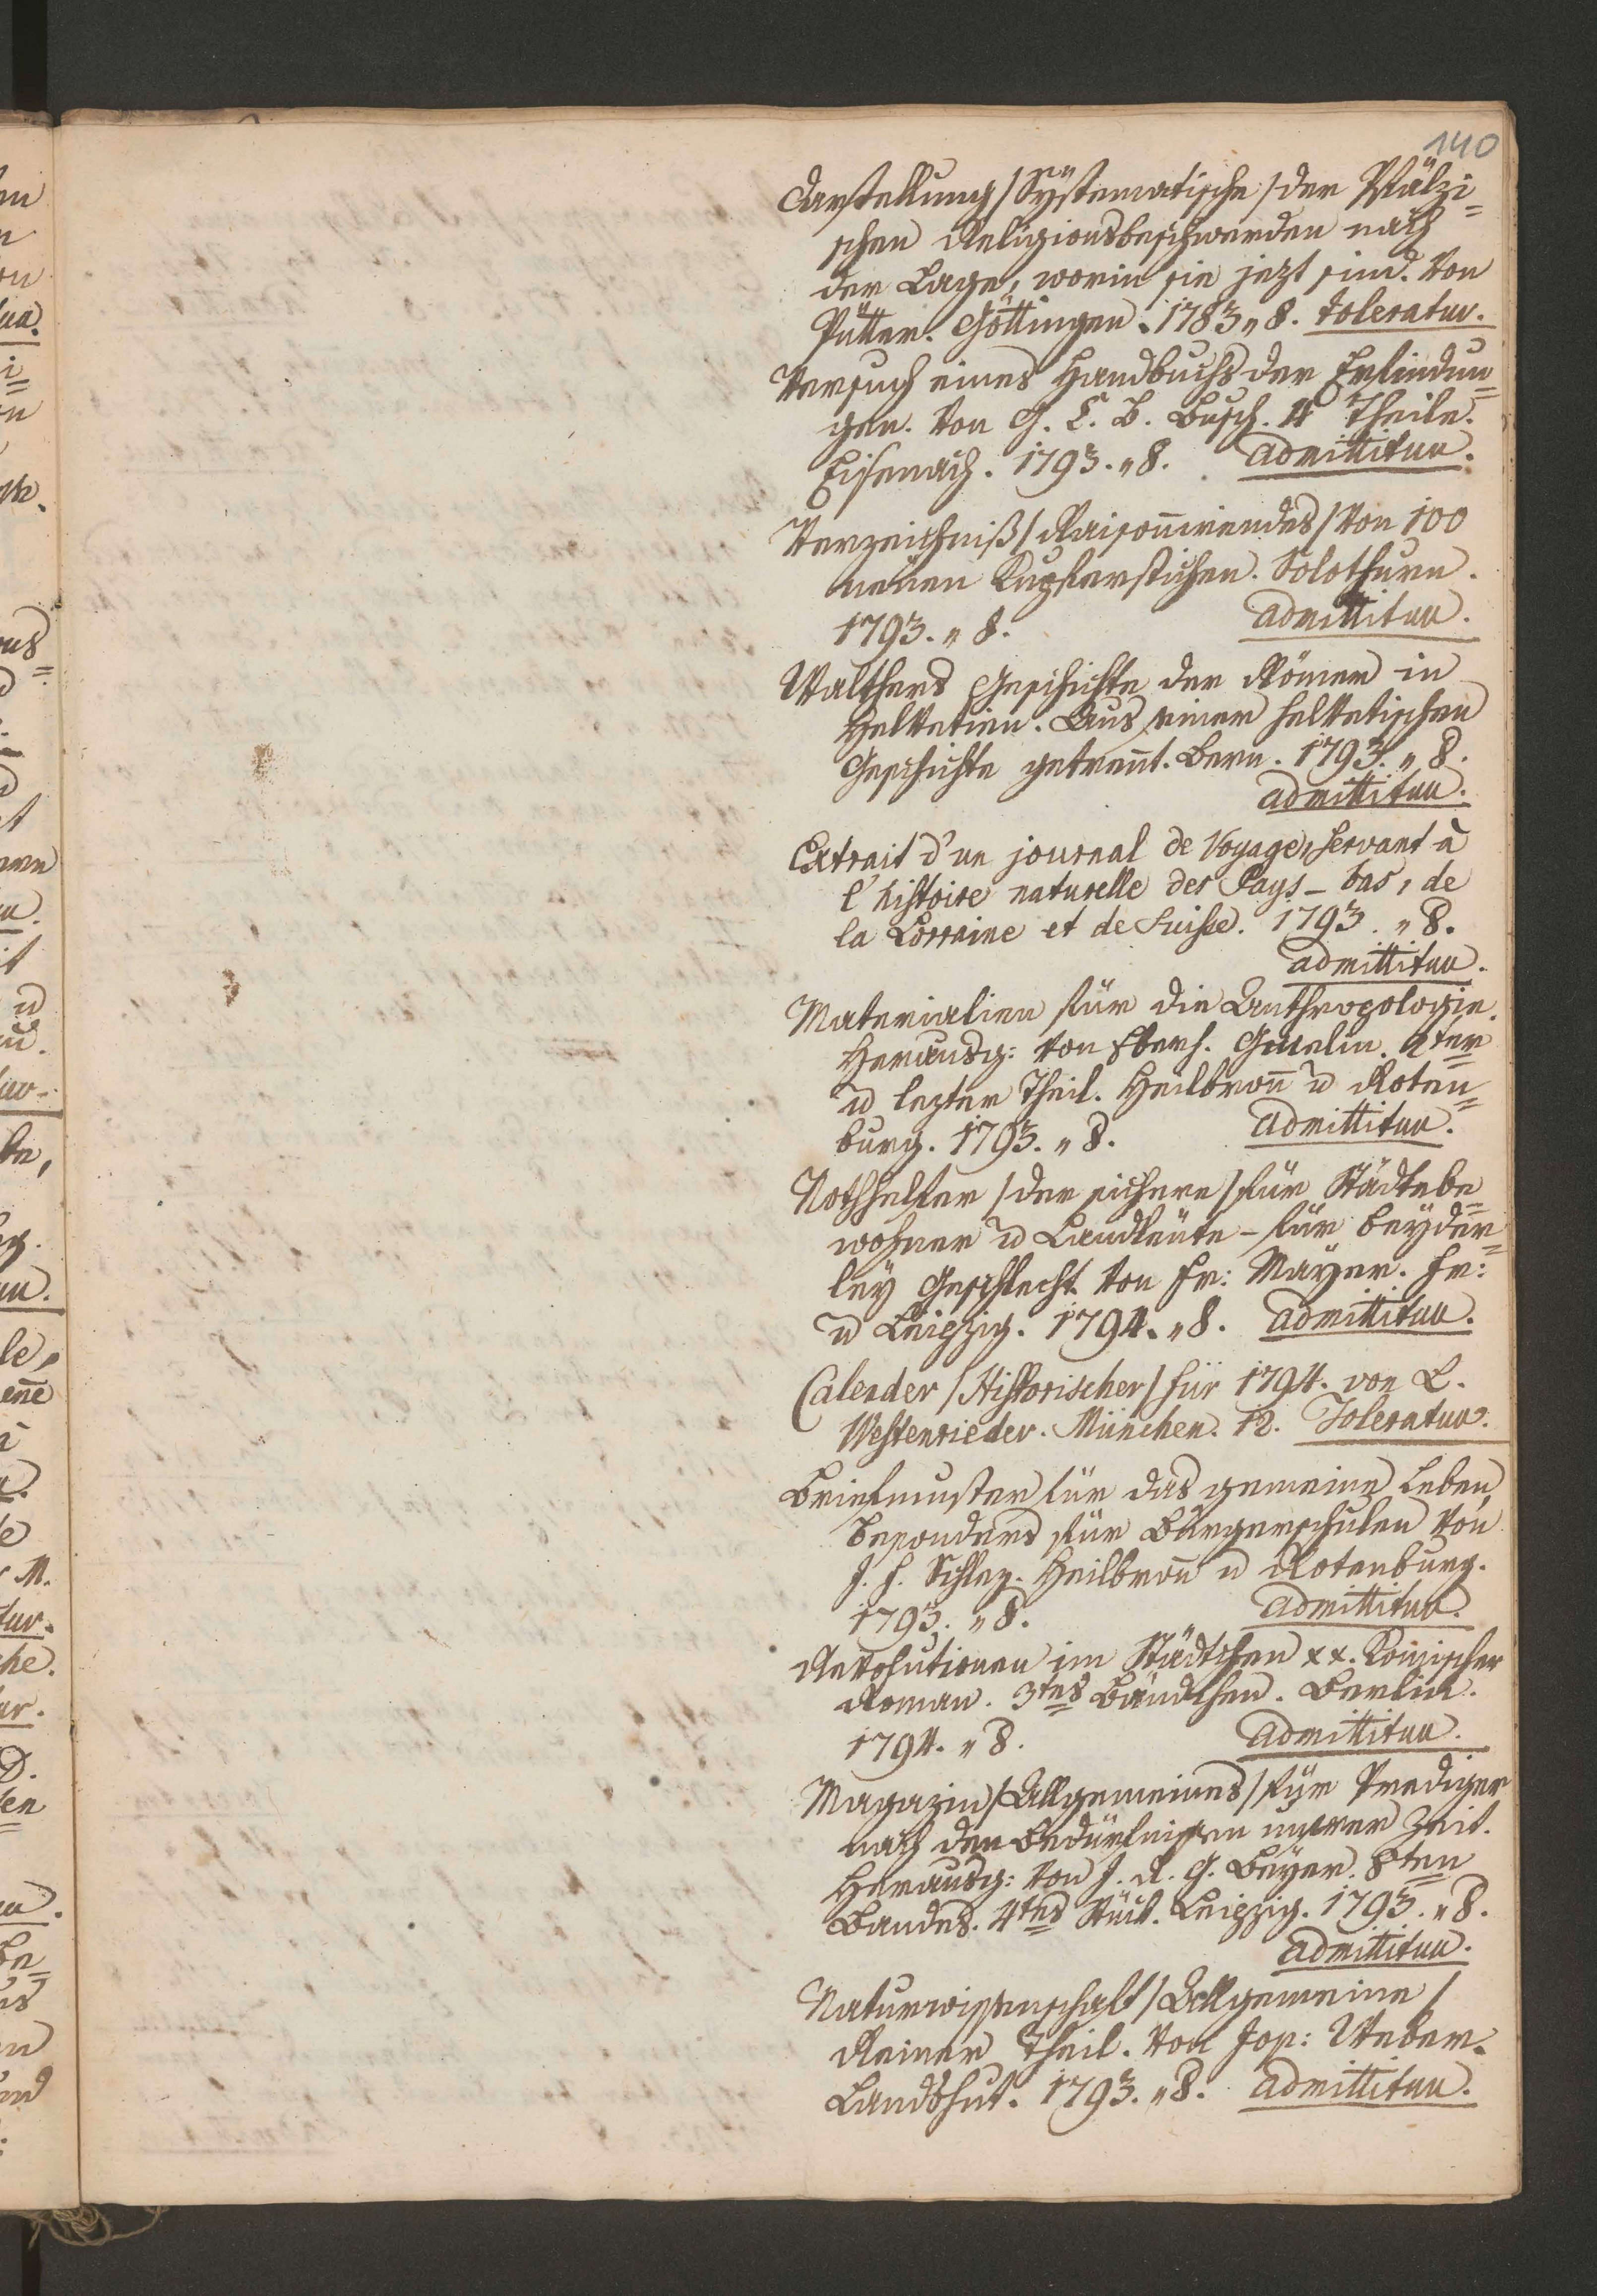 140
Darstellung /Systematische/ der Pfälzi=
schen Religionsbeschwerden nach
der Lage, worin sie jezt sind. Von
Pütter. Göttingen. 1783 „ 8. toleratur.
Versuch eines Handbuchs der Erfindun=
gen. Von G. C. B. Busch. 4 Theile.
Eisenach. 1793. „ 8. admittitur.
Verzeichniß /Raisonnirendes/ von 100
neuen Kupferstichen. Solothurn.
1793. „ 8. admittitur.
Walthers Geschichte der Römer in
Helvetien. Aus einer helvetischen
Geschichte getrennt. Bern. 1793. „ 8.
admittitur.
Extrait d'un journal de Voyage, servant à
l'histoire naturelle des Pays-bas, de
la Lorraine et de Suisse. 1793. „ 8.
admittitur.
Materialien für die Anthropologie.
Herausg: von Eberh. Gmelin. 2ter
u lezter Theil. Heilbronn u Roten=
burg. 1793. „ 8. admittitur.
Nothhelfer /der sichere/ für Städtebe=
wohner u Landleute – für beyder=
ley Geschlecht. Von Fr: Mayer. Fr:
u Leipzig. 1794. „ 8. admittitur.
Calender /Historischer/ für 1794. von L.
Westenrieder. München. 12. Toleratur.
Briefmuster für das gemeine Leben,
besonders für Bürgerschulen von
J. F. Schlez. Heilbronn u Rotenburg.
1793. „ 8. admittitur.
Revolutionen im Städtchen xx. Komischer
Roman. 3tes Bändchen. Berlin.
1794. „ 8. admittitur.
Magazin /Allgemeines/ für Prediger
nach den Bedürfnissen unserer Zeit.
Herausg: von J. R. G. Beyer. 8ten
Bandes. 4tes Stück. Leipzig. 1793. „ 8.
admittitur.
Naturwissenschaft /Allgemeine/
Reiner Theil. Von Jos: Weber.
Landshut. 1793. „ 8. admittitur.